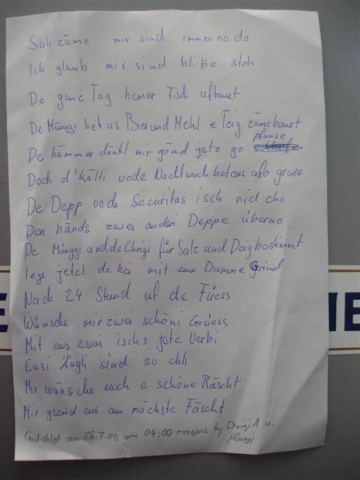 Sali zäme mir sind immerno do
Ich glaub mir sind blibe stoh
De ganz Tag hemer Fisch uftauet
De Münggi het us Bier und Mehl e Teig zämebauet
Do hämmer dänkt mir gönd jetz go pfuuse
Doch d'Kälti vode Nachtwach het eus afo gruse
De Depp vode Securitas isch nid cho
Den händs zwei anderi Deppe überno
De Münggi und de Chrigi für Salz und Deig bestimmt
lege jetzt de kei mit eme Damme Grind
Nach 24 Stund uf de Füess
Wünsche mir zwei schöni Grüess
Mit eus zwei ischs jetz Verbi
Eusi Äugli sind so chli
Mir wünsche euch e schöne Räscht
Mir gsend eus am nächste Fäscht
Gedichtet am 26.7.09 um 04:00 morgens by Chrigi A u.
Münggi
E
IE